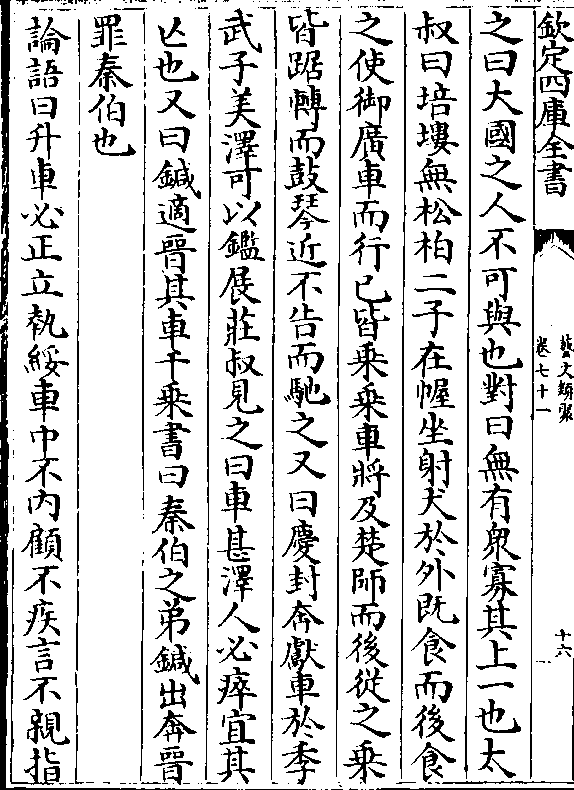 欽定四庫全書
藝文類聚
卷七十一
十六
之曰大國之人不可與也對曰無有衆寡其上一也太
叔曰培塿無松柏二子在幄坐射犬於外既食而後食
之使御廣車而行已皆乘乘車將及楚師而後從之乘
皆踞轉而鼓琴近不告而馳之又曰慶封奔獻車於季
武子美澤可以鑑展莊叔見之曰車甚澤人必瘁宜其
亾也又曰鍼適晉其車千乘書曰秦伯之弟鍼出奔晉
罪秦伯也
論語曰升車必正立執綏車中不內顧不疾言不親指